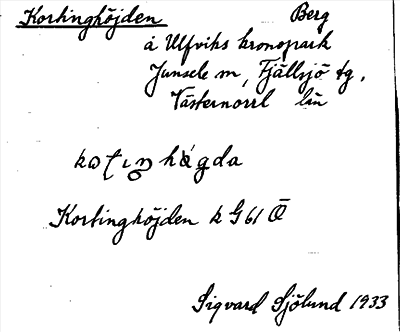 Kortinghöjden Berg
å Ulfviks kronopark
Junsele m, Fjällsjö tg.
Västernorrl län
Kortinghöjden k G 61 Ö
Sigvard Sjölund 1933